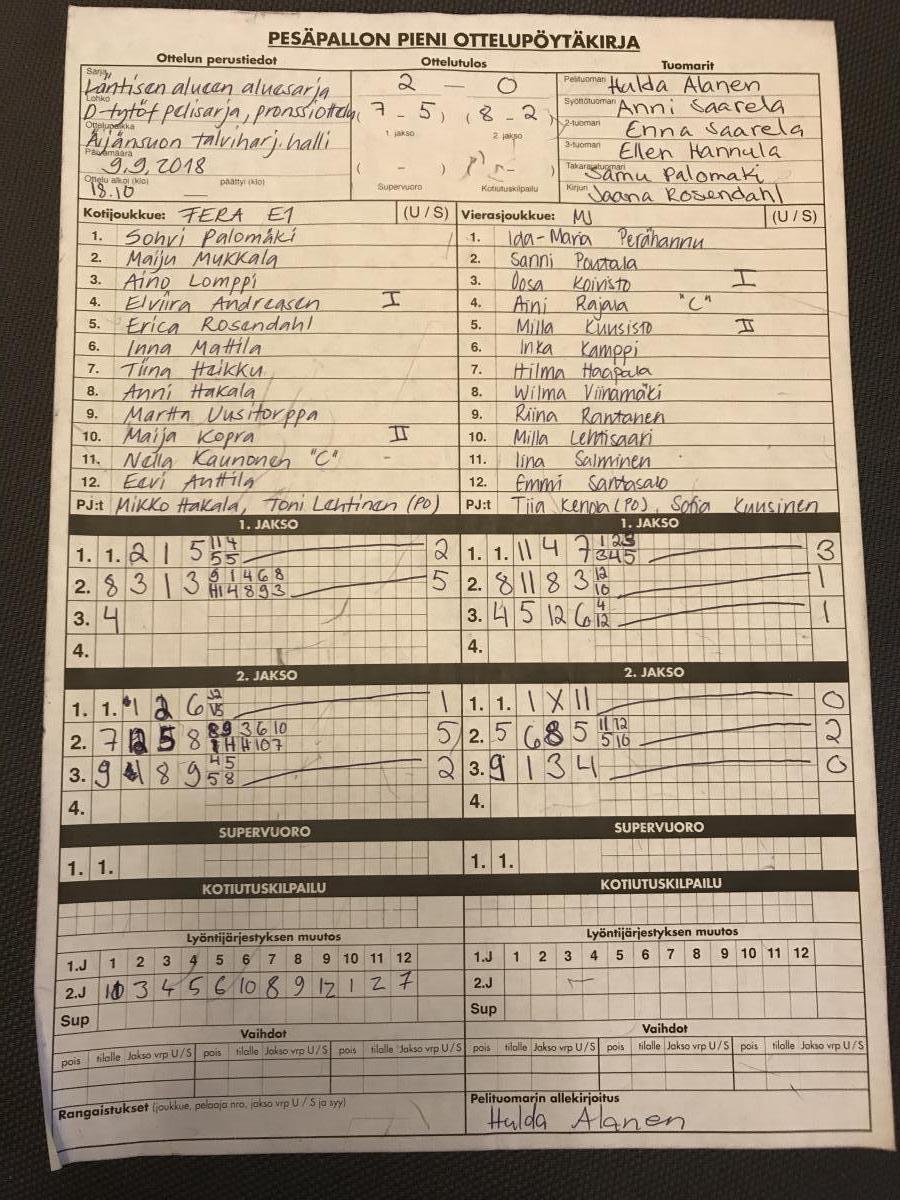 PESÄPALLON PIENI OTTELUPÖYTÄKIRJA
Ottelun perustiedot Ottelutulos Tuomarit
Sarja Läntisen alueen aluesarja 2 — 0 Pelituomari Hulda Alanen
Lohko D-tytöt pelisarja, pronssiottelu (7 - 5) (8 - 2) Syöttötuomari Anni Saarela
1. jakso 2. jakso 2-tuomari Enna Saarela
Ottelupaikka Äijänsuon talviharj. halli 3-tuomari Ellen Hannula
Päivämäärä 9.9.2018 ( - ) ( - ) Takarajatuomari Samu Palomäki
Ottelu alkoi (klo) 18.10 päättyi (klo) — Supervuoro Kotiutuskilpailu Kirjuri Jaana Rosendahl
Kotijoukkue: FERA E1 (U / S) Vierasjoukkue: MJ (U / S)
1. Sohvi Palomäki 1. Ida-Maria Perähannu
2. Maiju Mukkala 2. Sanni Poutala
3. Aino Lomppi 3. Oosa Koivisto I
4. Elviira Andreasen I 4. Aini Rajala "C"
5. Erica Rosendahl 5. Milla Kuusisto II
6. Inna Mattila 6. Inka Kamppi
7. Tiina Haikku 7. Hilma Haapala
8. Anni Hakala 8. Wilma Viinamäki
9. Martta Uusitorppa 9. Riina Rantanen
10. Maija Kopra II 10. Milla Lehtisaari
11. Nella Kaunonen "C" - 11. Iina Salminen
12. Eevi Anttila 12. Emmi Santasalo
PJ:t Mikko Hakala, Toni Lehtinen (PO) PJ:t Tiia Kenppa (PO), Sofia Kuusinen
1. JAKSO 1. JAKSO
1. 1. 2 1 5 11 4 2 1. 1. 11 4 7 1 2 3 3
5 5 3 4 5
2. 8 3 1 3 9 1 4 6 8 5 2. 8 11 8 3 12 1
11 1 4 8 9 3 10
3. 4 3. 4 5 12 6 4 1
12
4. 4.
2. JAKSO 2. JAKSO
1. 1. 1 2 6 12 1 1. 1. 1 X 11 0
2. 7 12 5 8 8 9 3 6 10 5 2. 5 6 8 5 11 12 2
10 7 5 10
3. 9 8 9 4 5 2 3. 9 1 3 4 0
5 8
4. 4.
SUPERVUORO SUPERVUORO
1. 1. 1. 1.
KOTIUTUSKILPAILU KOTIUTUSKILPAILU
Lyöntijärjestyksen muutos Lyöntijärjestyksen muutos
1.J 1 2 3 4 5 6 7 8 9 10 11 12 1.J 1 2 3 4 5 6 7 8 9 10 11 12
2.J 11 3 4 5 6 10 8 9 12 1 2 7 2.J —
Sup Sup
Vaihdot Vaihdot
pois tilalle Jakso vrp U / S pois tilalle Jakso vrp U / S pois tilalle Jakso vrp U / S pois tilalle Jakso vrp U / S pois tilalle Jakso vrp U / S pois tilalle Jakso vrp U / S
Rangaistukset (joukkue, pelaaja nro, jakso vrp U / S ja syy) Pelituomarin allekirjoitus
Hulda Alanen